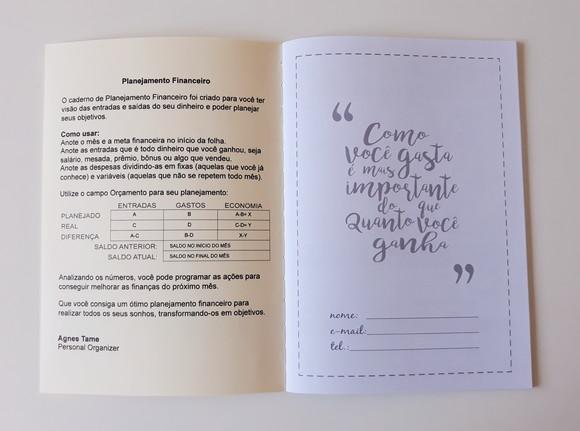 Planejamento Financeiro
O caderno de Planejamento Financeiro foi criado para você ter
visão das entradas e saídas do seu dinheiro e poder planejar
seus objetivos.
Como usar:
Anote o mês e a meta financeira no início da folha.
Anote as entradas que é todo dinheiro que você ganhou, seja
salário, mesada, prêmio, bônus ou algo que vendeu.
Anote as despesas dividindo-as em fixas (aquelas que você já
conhece) e variáveis (aquelas que não se repetem todo mês).
Utilize o campo Orçamento para seu planejamento:
ENTRADAS GASTOS ECONOMIA
PLANEJADO A B A-B= X
REAL C D C-D= Y
DIFERENÇA A-C B-D X-Y
SALDO ANTERIOR: SALDO NO INÍCIO DO MÊS
SALDO ATUAL: SALDO NO FINAL DO MÊS
Analizando os números, você pode programar as ações para
conseguir melhorar as finanças do próximo mês.
Que você consiga um ótimo planejamento financeiro para
realizar todos os seus sonhos, transformando-os em objetivos.
Agnes Tame
Personal Organizer
“
Como
você gasta
é mais
importante
do que
Quanto você
ganha
”
nome:
e-mail:
tel.: